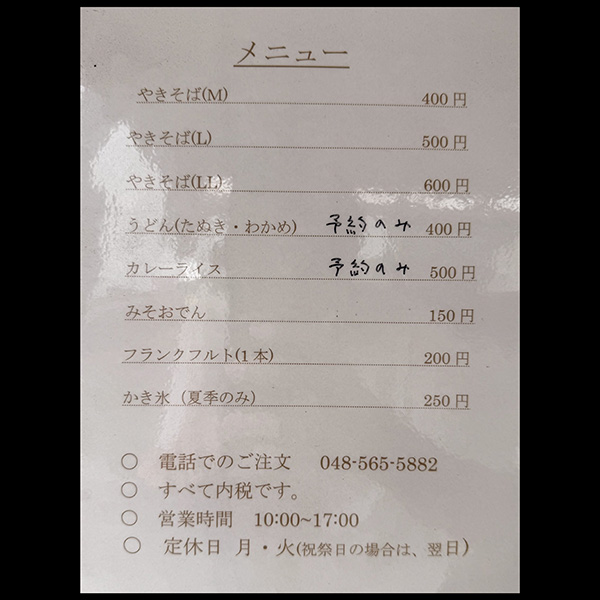 メニュー
やきそば(M) 400円
やきそば(L) 500円
やきそば(LL) 600円
うどん(たぬき・わかめ) 予約のみ 400円
カレーライス 予約のみ 500円
みそおでん 150円
フランクフルト(1本) 200円
かき氷（夏季のみ） 250円
○ 電話でのご注文 048-565-5882
○ すべて内税です。
○ 営業時間 10:00~17:00
○ 定休日 月・火(祝祭日の場合は、翌日)